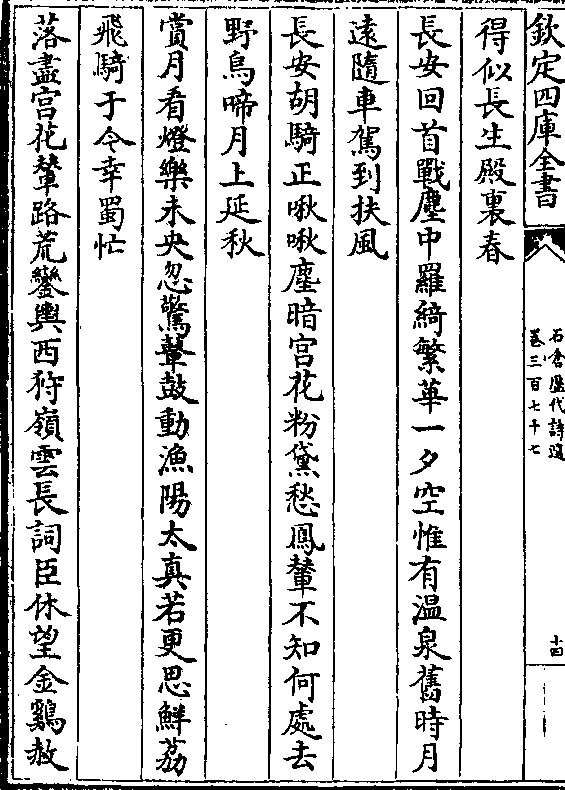 欽定四庫全書
石倉歷代詩選
卷三百七十七
十四
得似長生殿裏春
長安回首戰塵中羅綺繁華一夕空惟有温泉舊時月
逺隨車駕到扶風
長安胡騎正啾啾塵暗宫花粉黛愁鳳輦不知何處去
野鳥啼月上延秋
賞月看燈樂未央忽驚鼙鼓動漁陽太真若更思鮮荔
飛騎于今幸蜀忙
落盡宫花輦路荒鑾輿西狩嶺雲長詞臣休望金鷄赦